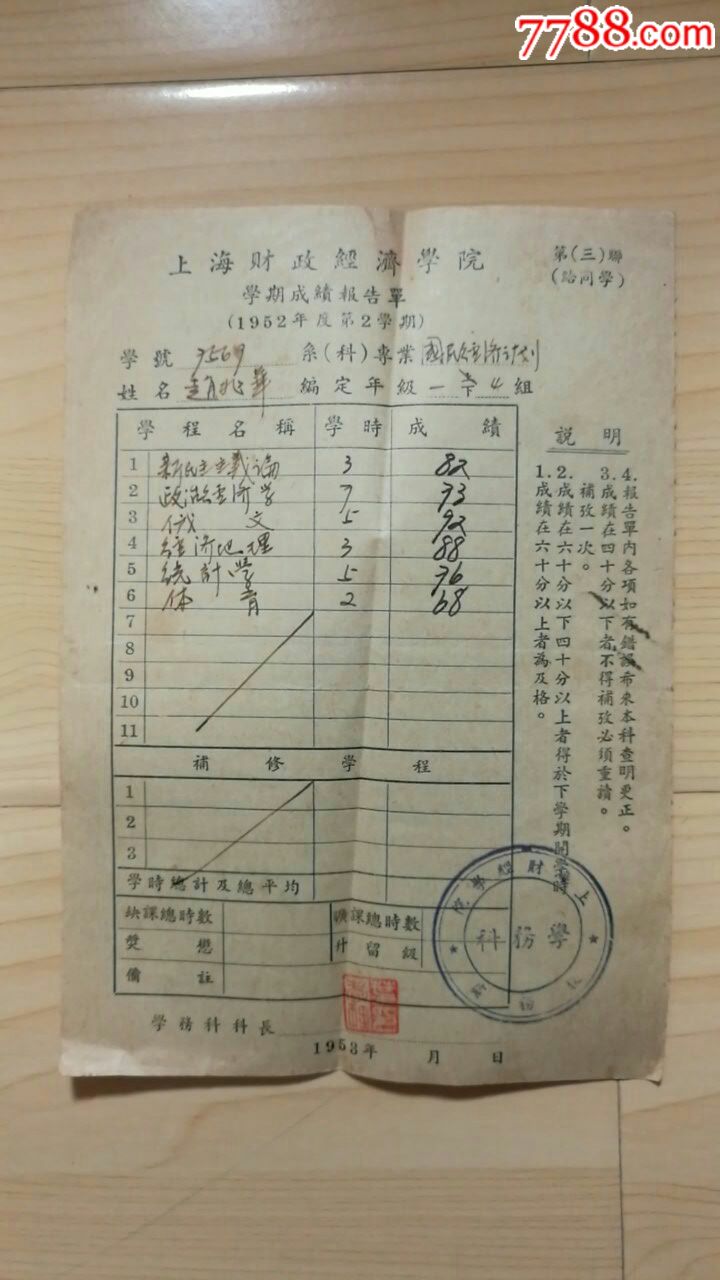 7788.com
上海財政經濟學院
第(三)聯
(給同學)
學期成績報告單
(1952年度第2學期)
學號 系(科)專業 國民經濟計划
姓名 編定年級 一下4組
學程名稱 學時 成績
1 新民主主義論 3 82
2 政治經濟学 7 73
3 俄文 5 92
4 經济地理 3 88
5 統計学 5 76
6 体育 2 68
7
8
9
10
11
補修學程
1
2
3
學時總計及總平均
缺課總時數 曠課總時數
獎懲 升留級
備註
學務科科長
1953年 月 日
說明
1.成績在六十分以上者為及格。
2.成績在六十分以下四十分以上者得於下學期開學時
補攷一次。
3.成績在四十分以下者不得補攷必須重讀。
4.報告單內各項如有錯誤希來本科查明更正。
上 財經學院
學務科